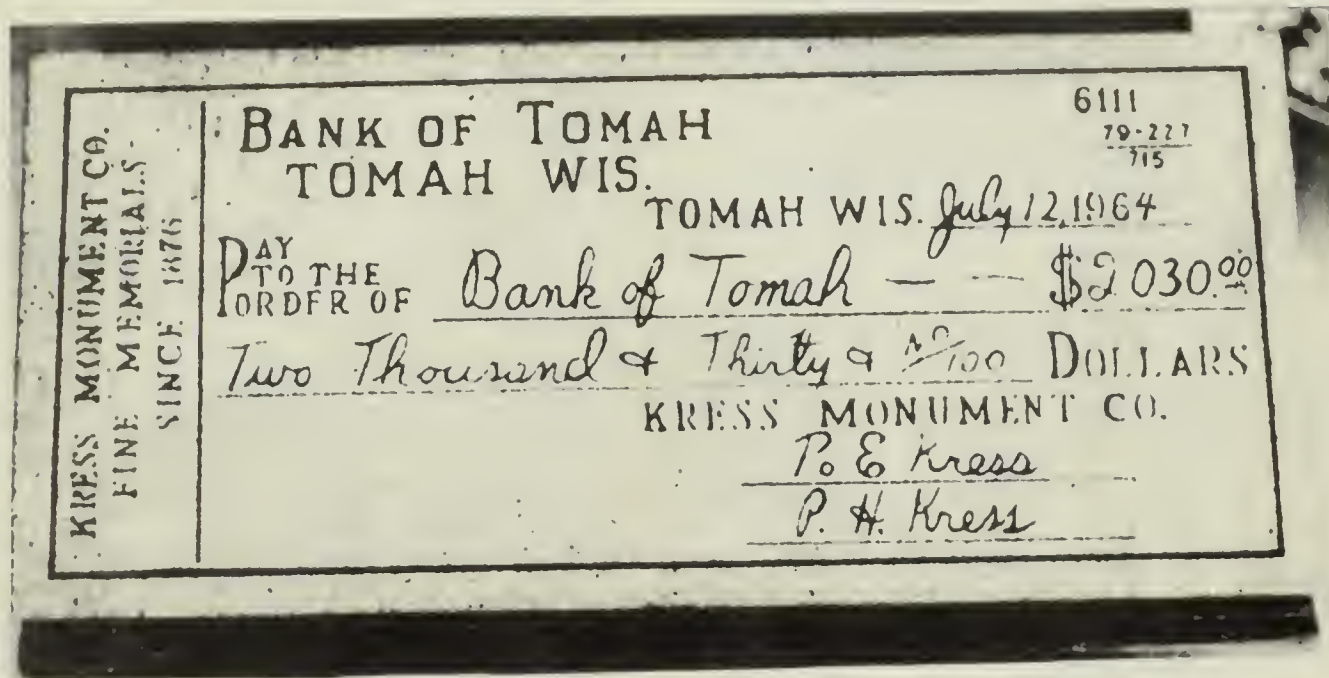 KRESS MONUMENT CO.
FINE MEMORIALS
SINCE 1876
BANK OF TOMAH
TOMAH WIS.
6111
79-227
715
TOMAH WIS. July 12, 1964
PAY TO THE ORDER OF Bank of Tomah — — $2030.00
Two Thousand & Thirty & no/100 DOLLARS
KRESS MONUMENT CO.
P. E Kress
P. H. Kress